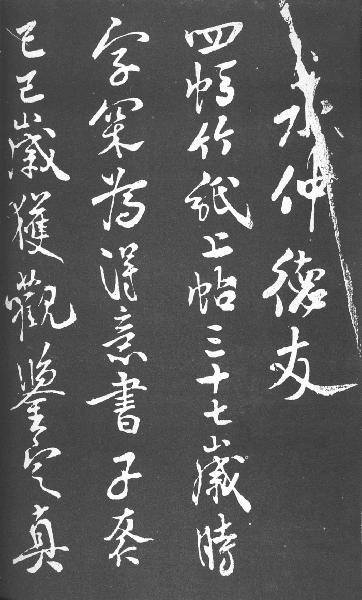 仲德友
四幅竹紙上帖三十七歲時
字為得意書子
己巳歲獲觀鑒定真